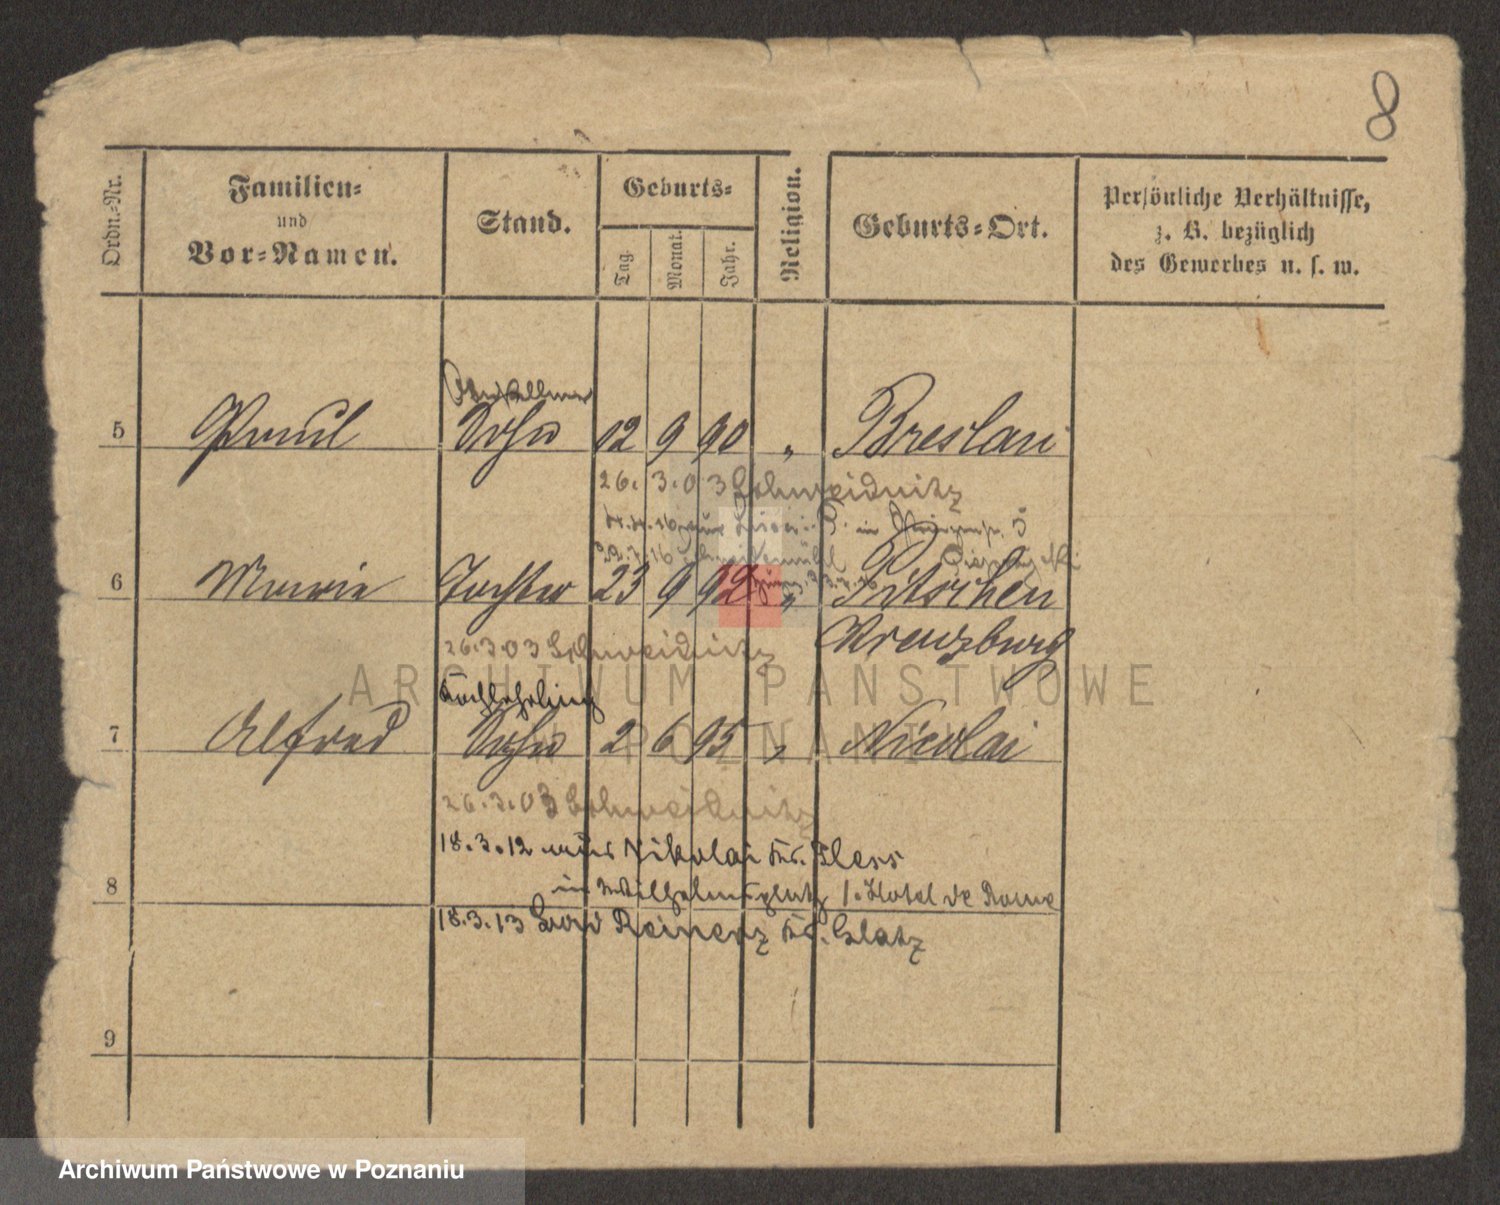 8
Ordn.-Nr.
Familien-
und
Vor-Namen.
Stand.
Geburts-
Tag.
Monat.
Jahr.
Religion.
Geburts-Ort.
Persönliche Verhältnisse,
z. B. bezüglich
des Gewerbes u. s. w.
5 Paul Sohn 12 9 90 " Breslau
26. 3. 03 Schweidnitz
6 Marie Tochter 23 9 92 " Pitschen
Kreuzburg
26.3.03 Schweidnitz
Kochlehrling
7 Alfred Sohn 2 6 95 " Nicolai
26.3.03 Schweidnitz
18.3.12 aus Nikolai Kr. Pless
8 in Wilhelmsplatz 1. Hotel de Rome
18.3.13 Bad Reinerz Kr. Glatz
9
ARCHIWUM PAŃSTWOWE
W POZNANIU
Archiwum Państwowe w Poznaniu